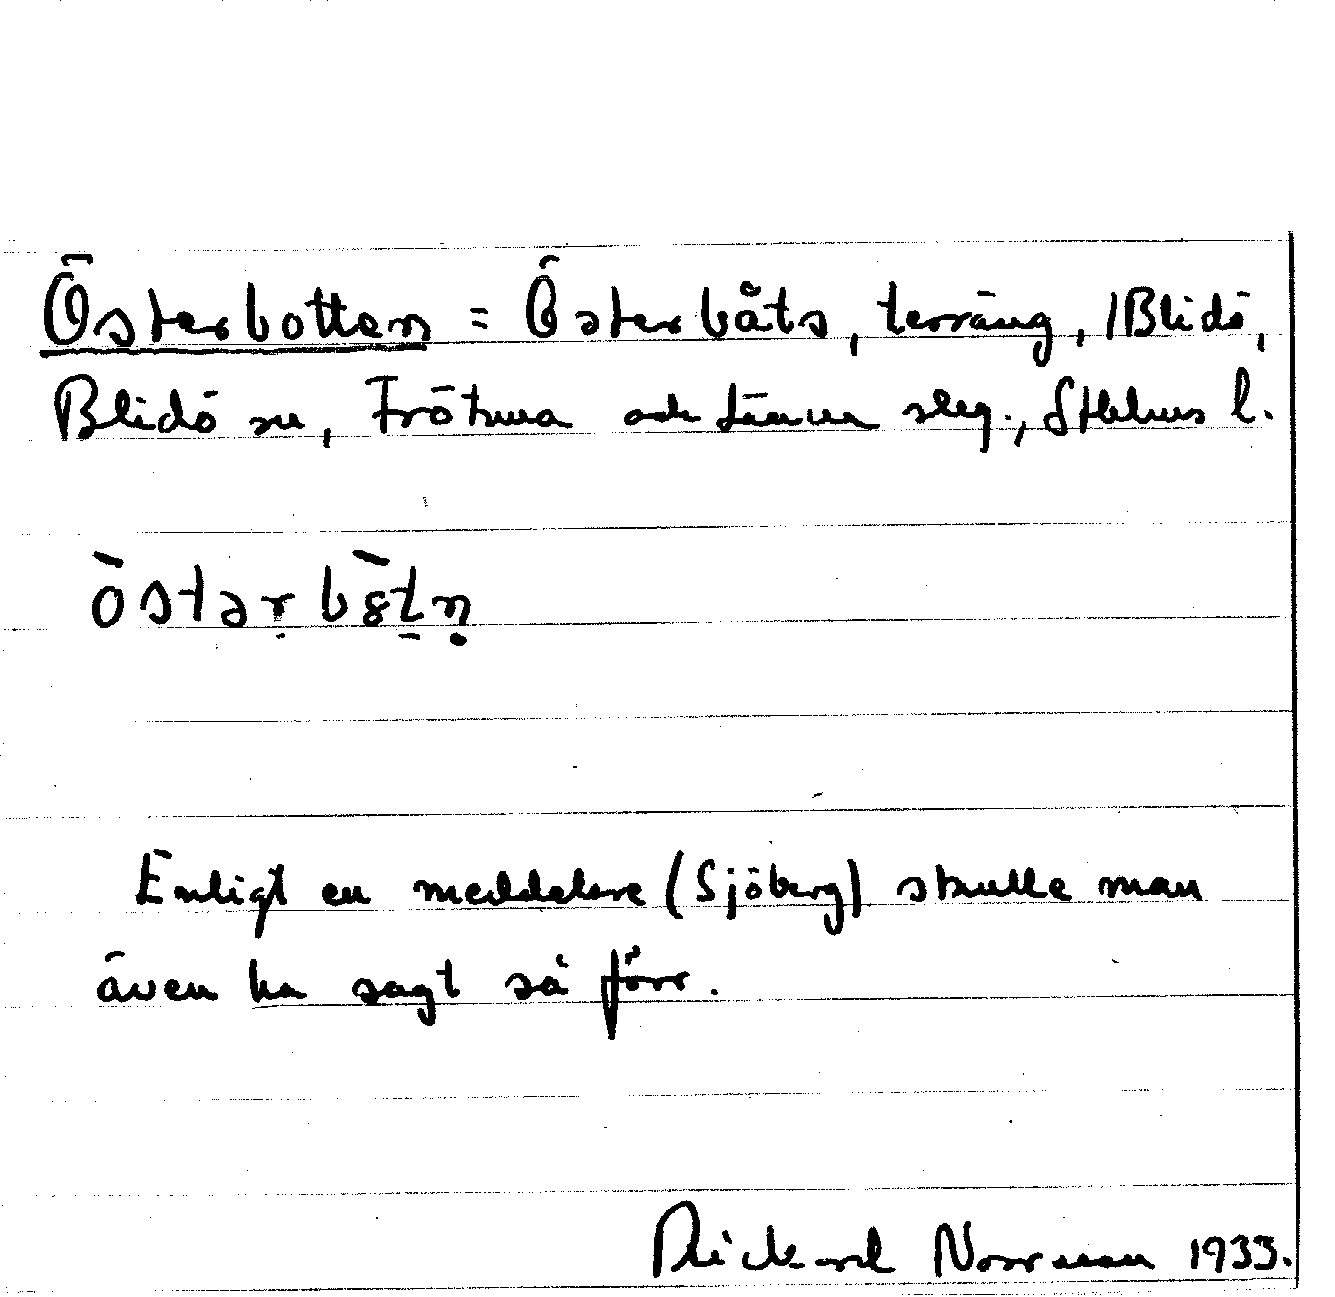 Österbotten = Österbåts, terräng, /Blidö,
Blidö sn, Frötuna och Länna slag., Sthlms l.
östərbȣtn̥
Enligt en meddelare (Sjöberg) skulle man
även ha sagt så förr.
Rickard Norrman 1933.